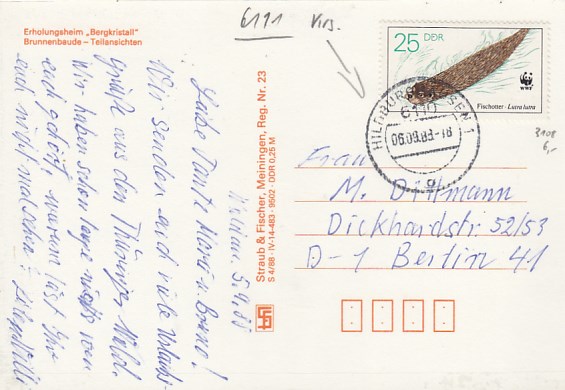 Erholungsheim „Bergkristall"
Brunnenbaude – Teilansichten
6191
25 DDR
WWF
Fischotter - Lutra lutra
HILDBURGHAUSEN 1
6110
g
3108
6,-
Liebe Tante Maria u. Bruno!
Wir senden euch viele Urlaubs-
grüße aus den Thüringer Wald.
Wir haben schon lange nichts von
euch gehört, warum lasst Ihr
euch nicht mal sehen?
5.9.88
Straub & Fischer, Meiningen, Reg. Nr. 23
S 4/88 - IV-14-483 - 9502 - DDR 0,25 M
Frau
M. Dittmann
Dickhardtstr. 52/53
D-1 Berlin 41